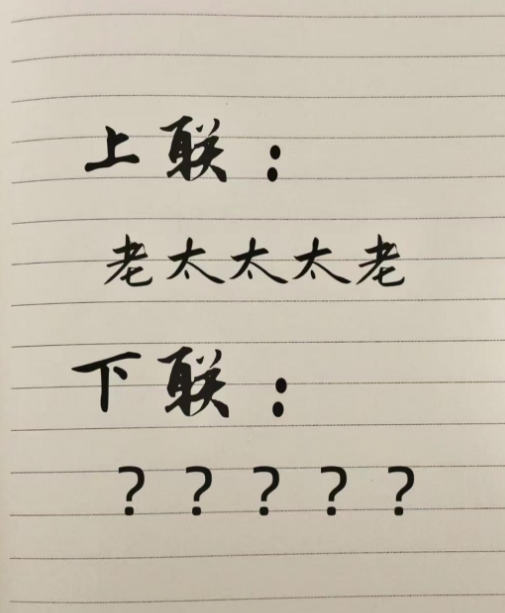 上联：
老太太太老
下联：
？？？？？